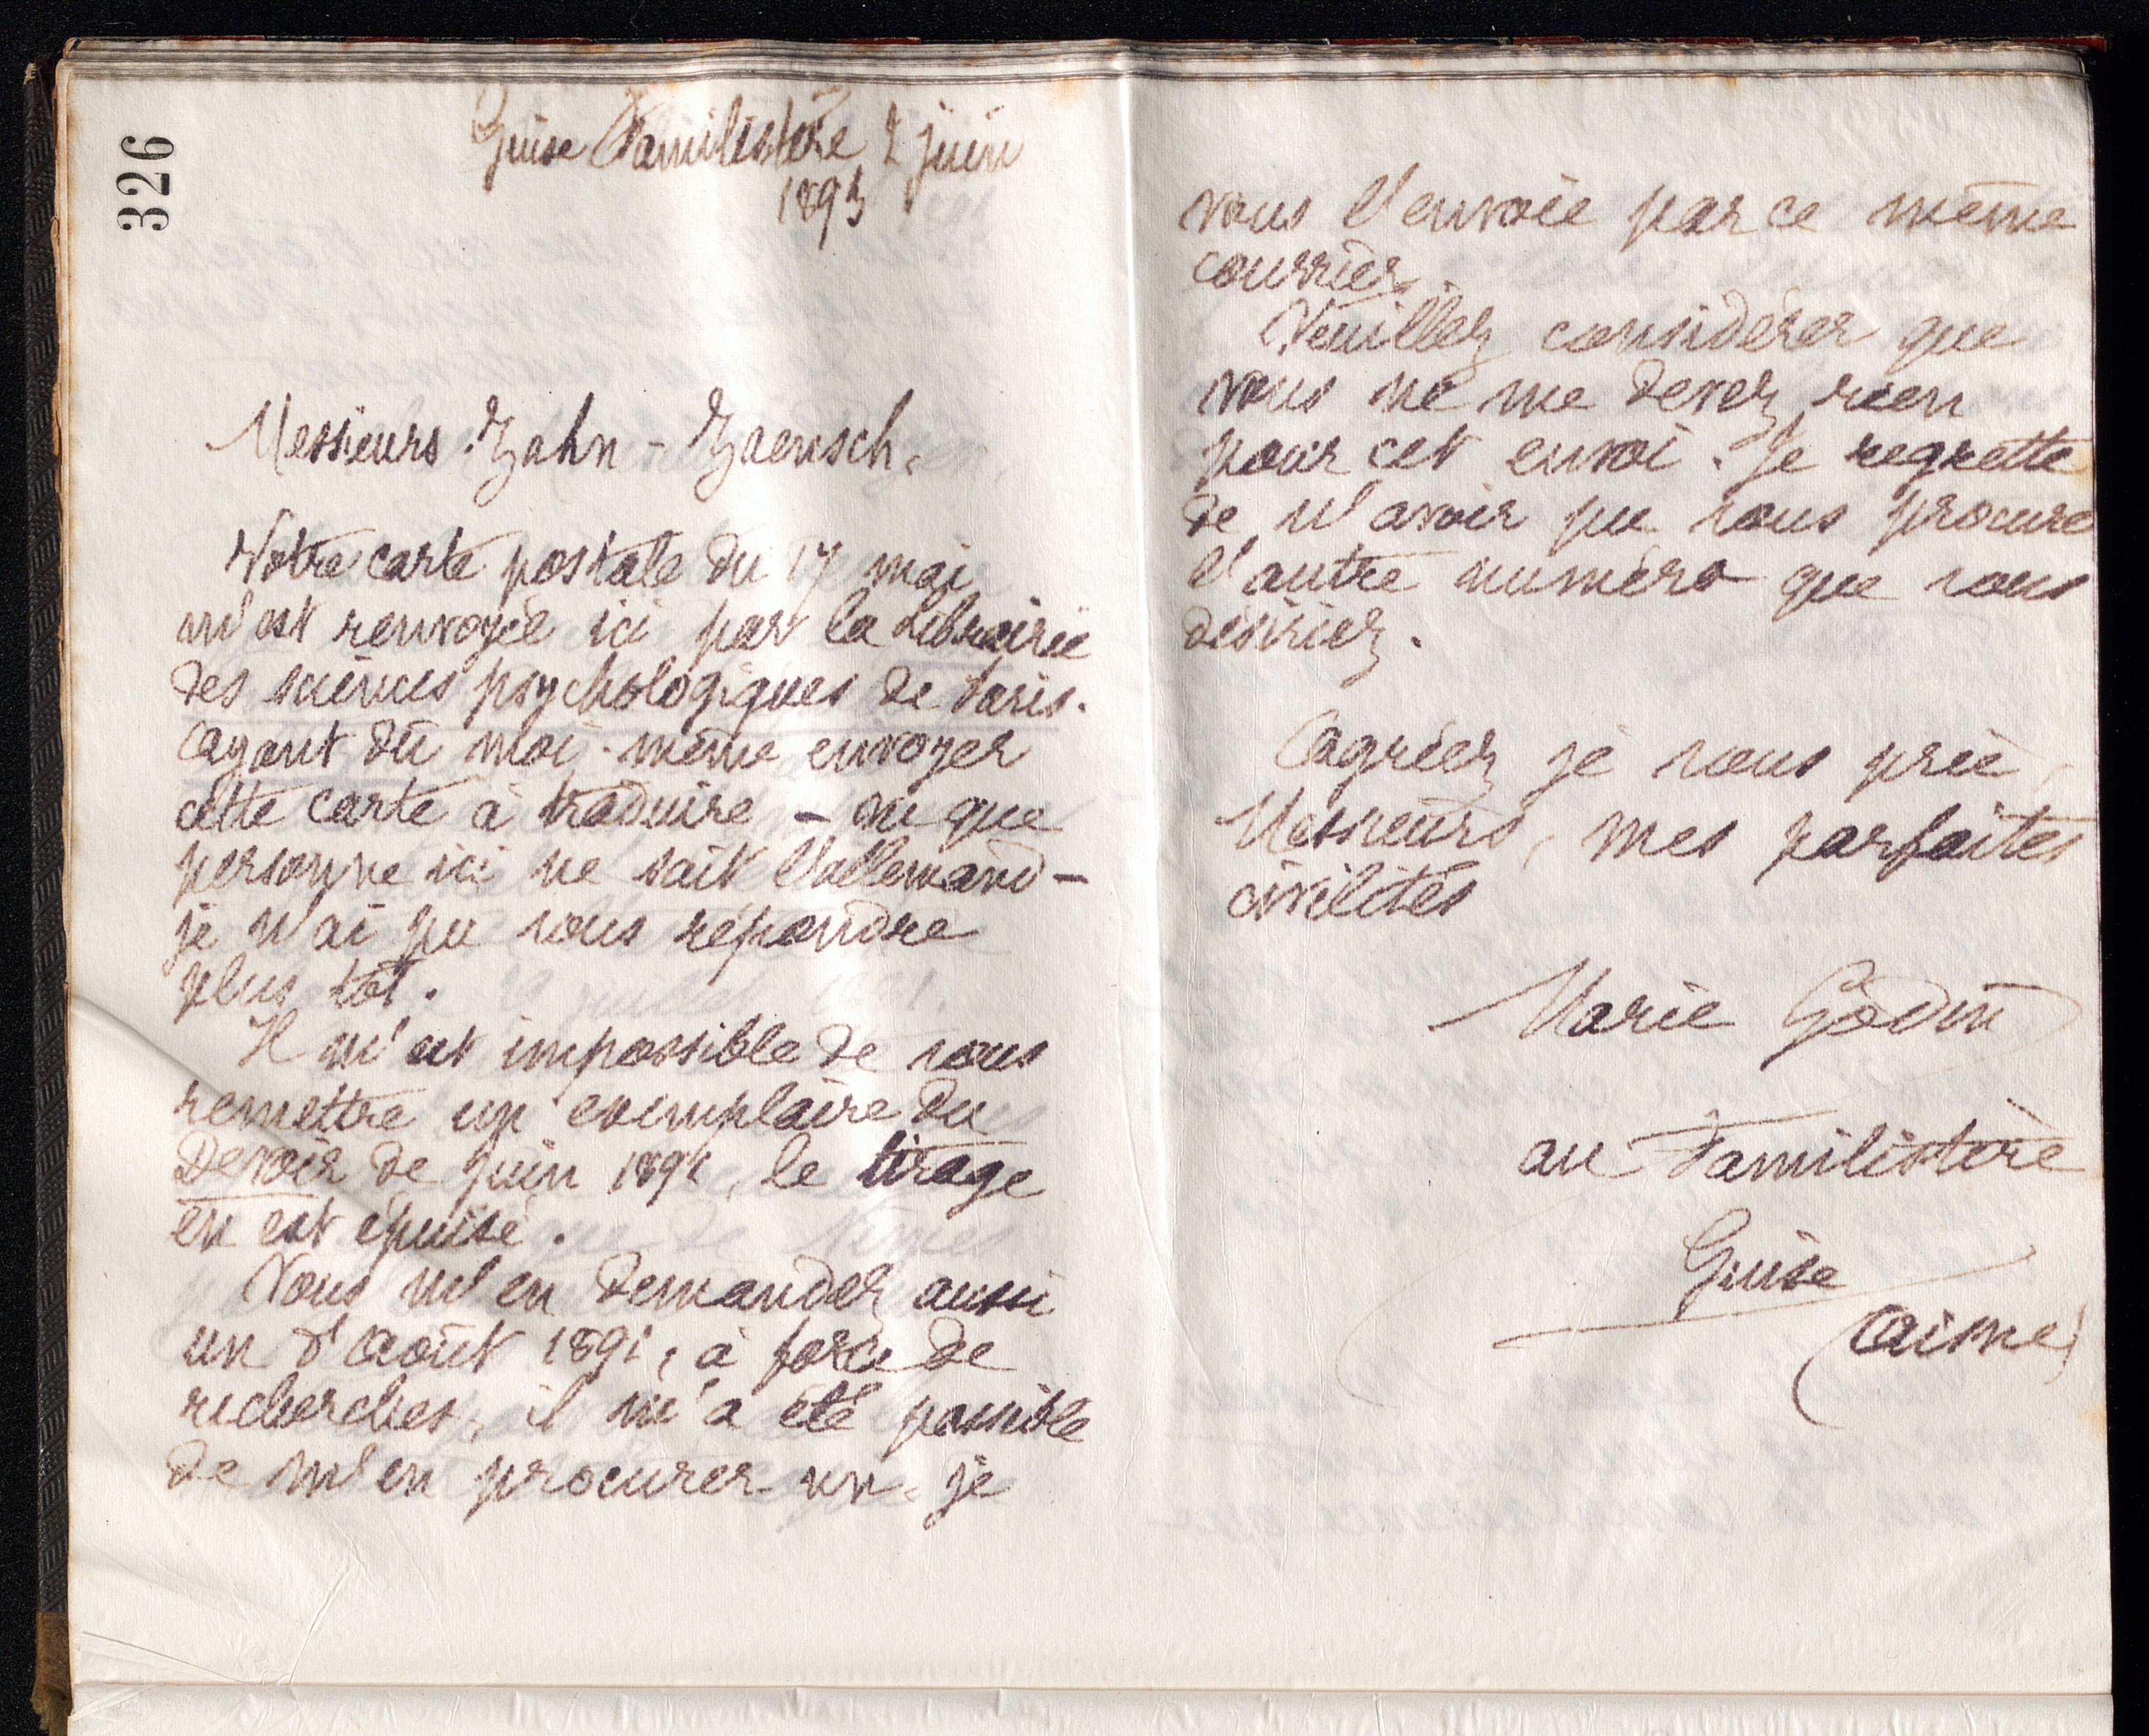 326
Guise Familistère 2 juin
1893
Messieurs Zahn-Zaensch,
Votre carte postale du 17 mai
m'est renvoyée ici par la Librairie
des sciences psychologiques de Paris.
Ayant dû moi-même envoyer
cette carte à traduire - vu que
personne ici ne sait l'allemand -
je n'ai pu vous répondre
plus tôt.
Il m'est impossible de vous
remettre un exemplaire du
Devoir de juin 1891, le tirage
en est épuisé.
Vous m'en demandez aussi
un d'août 1891, à force de
recherches, il m'a été possible
de m'en procurer un. je
vous l'envoie par ce même
courrier.
Veuillez considérer que
vous ne me devez rien
pour cet envoi. Je regrette
de n'avoir pu vous procurer
l'autre numéro que vous
désiriez.
Agréez je vous prie,
Messieurs, mes parfaites
civilités
Marie Godin
au Familistère
Guise
(Aisne)